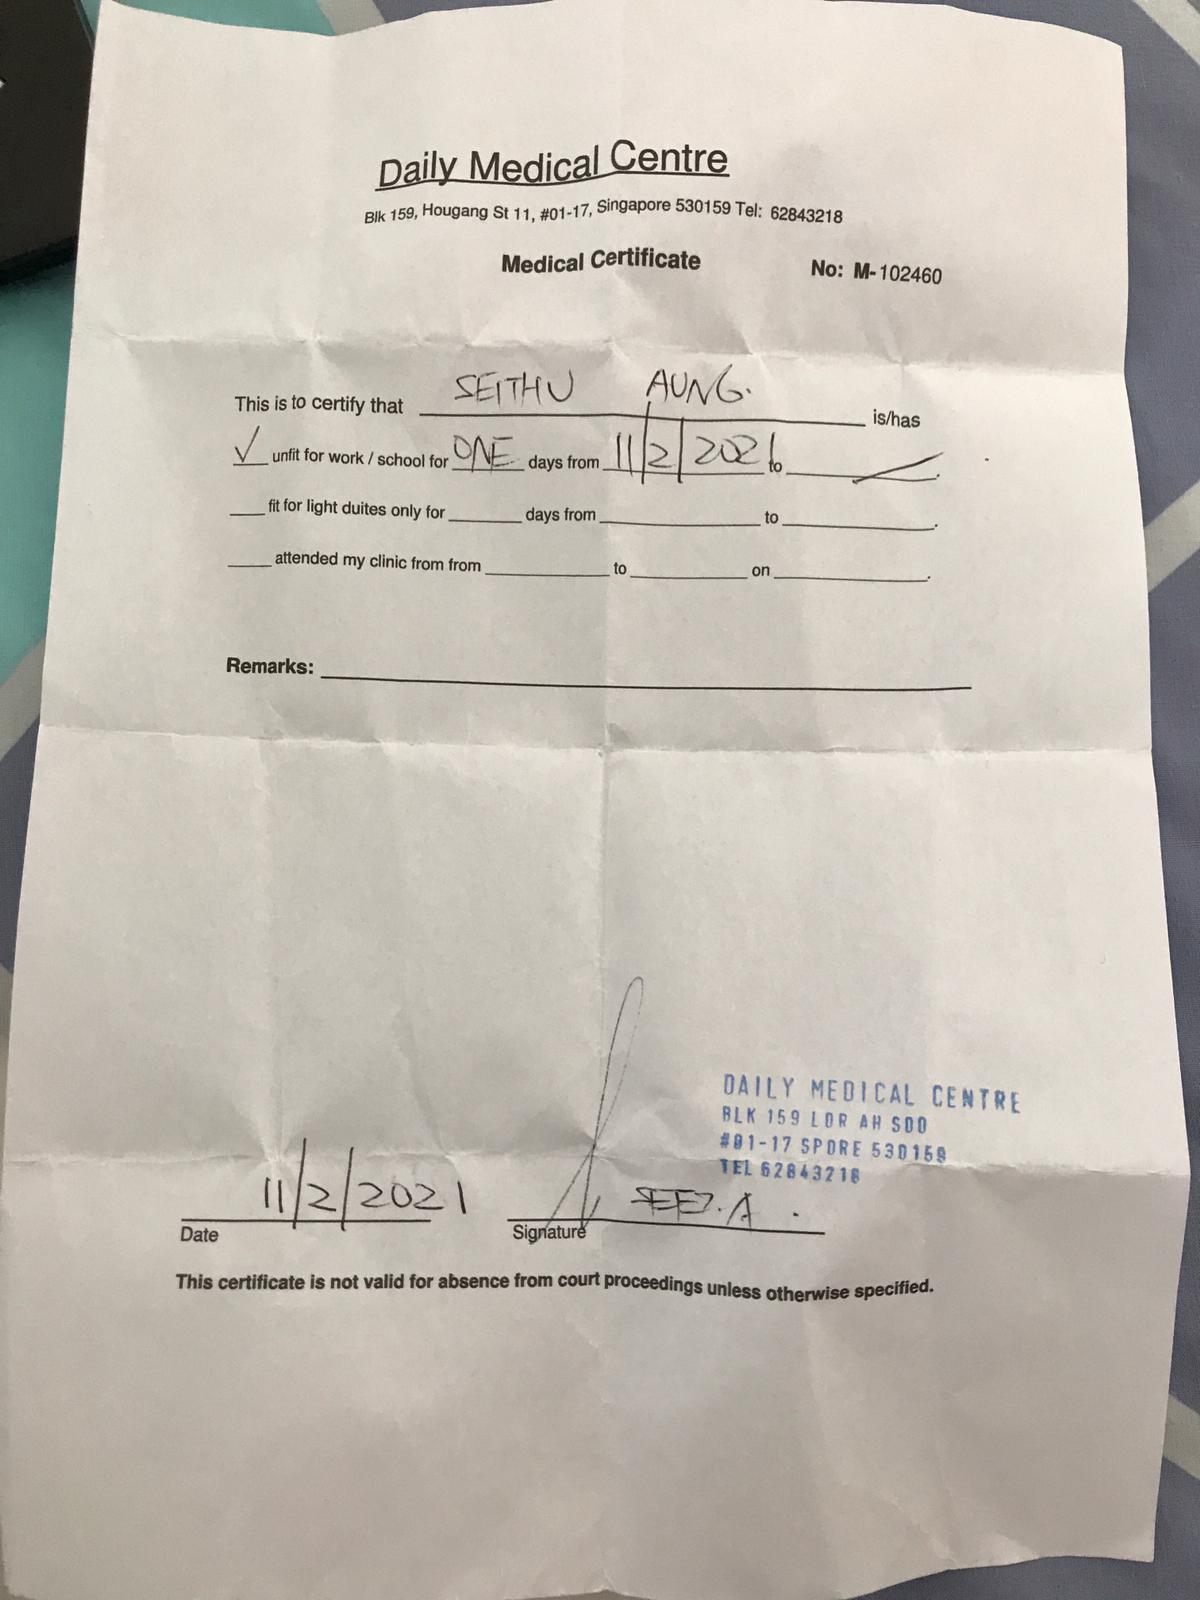 Daily Medical Centre
Blk 159, Hougang St 11, #01-17, Singapore 530159 Tel: 62843218
Medical Certificate No: M-102460
This is to certify that SEITHU AUNG. is/has
✓ unfit for work / school for ONE days from 11/2/2021 to
fit for light duites only for days from to .
attended my clinic from from to on .
Remarks:
DAILY MEDICAL CENTRE
BLK 159 LOR AH SOO
#01-17 SPORE 530159
TEL 62843218
11/2/2021
Date Signature
This certificate is not valid for absence from court proceedings unless otherwise specified.